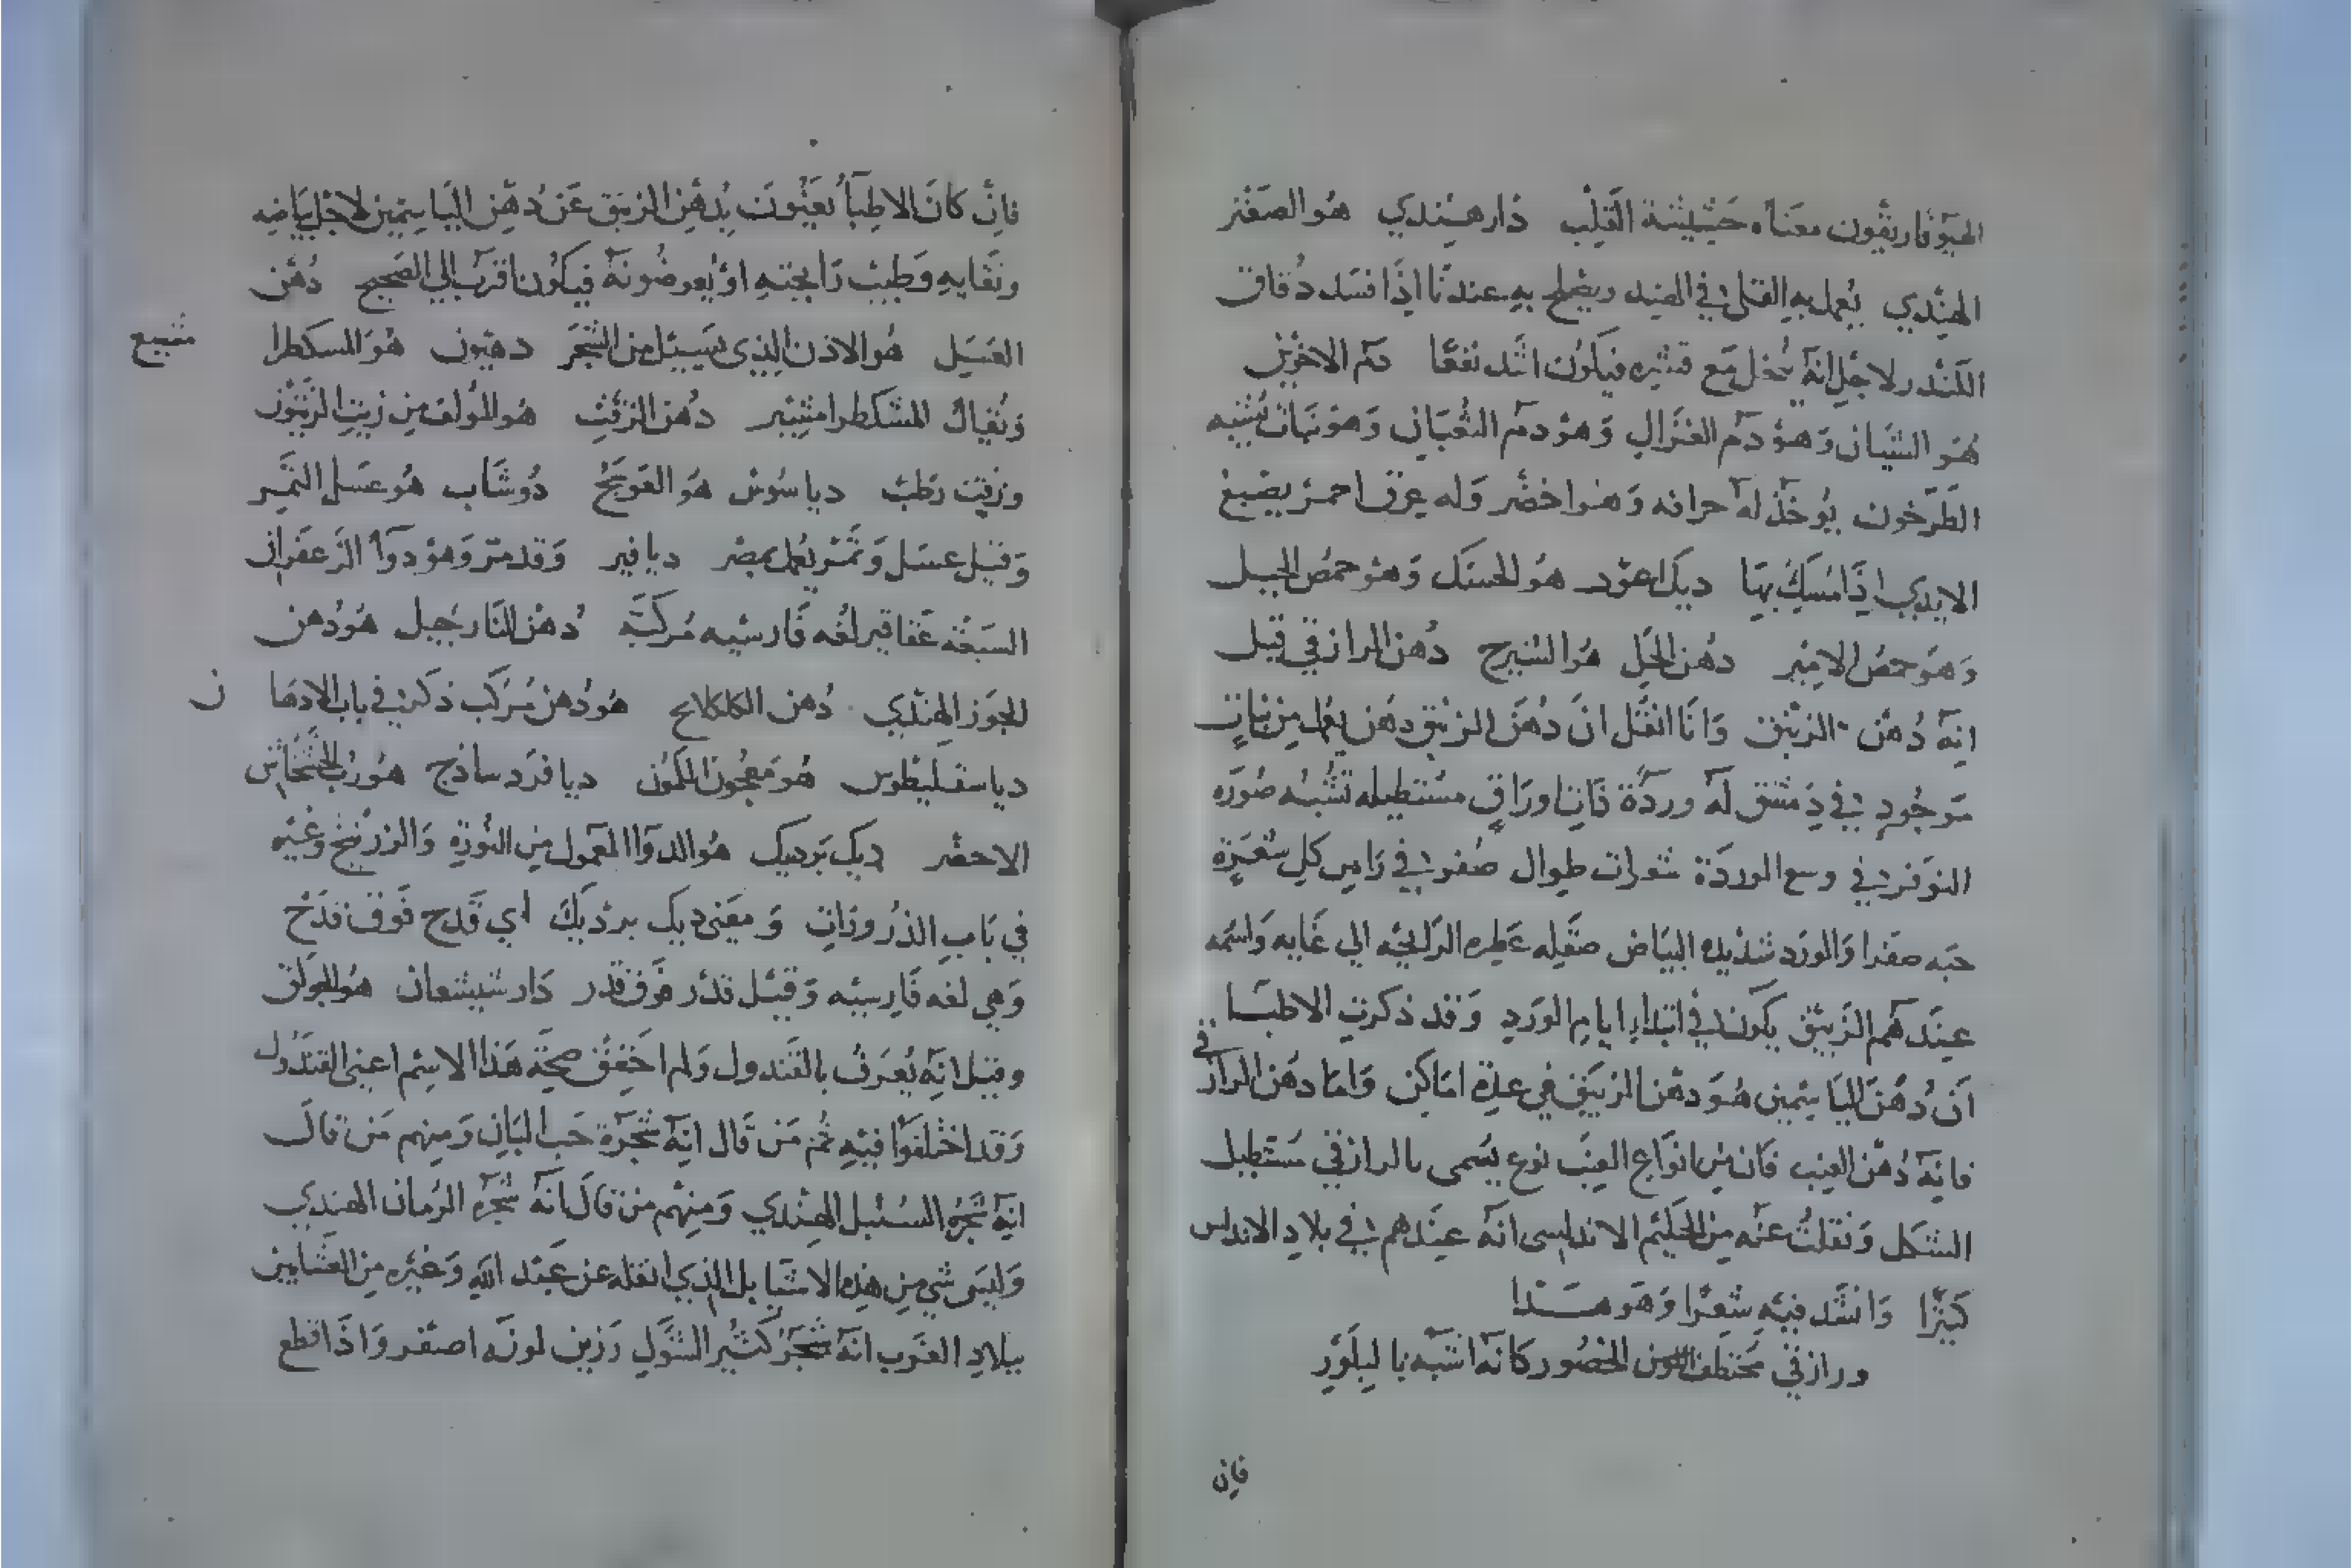 الهيوفاريقون معناه حشيشة القلب دار هندي هو الصفر
الهندي يعمل به القلي في الهند ويصلح به عندنا اذا فسد دقاق
الكندر لاجل انه ينخل مع قشره فيكون اشد نفعا دم الاخوين
هو الشيان وهو دم الغزال وهو دم الثعبان وهو نبات يشبه
الطرخون يوخذ له حرافه وهو اخضر وله عرق احمر يصبغ
الايدي اذا مسك بها ديك اعور هو الحسك وهو حمص الجبل
وهو حمص الامير دهن الحل هو الشيرج دهن الرازقي قيل
انه دهن الزنبق وانا انقل ان دهن الزنبق دهن يعمل من نبات
موجود في دمشق له وردة ذات اوراق مستطيله تشبه صوره
النوفر في وسع الوردة شعرات طوال صفر في راس كل شعيرة
حبه صفرا والورد شديده البياض صقيله عطره الرايحه الي غايه واسمه
عندهم الزنبق يكون في ابتداء ايام الورد وقد ذكرت الاطبا
ان دهن الياسمين هو دهن الزنبق في عدة اماكن واما دهن الرازقي
فانه دهن العنب فان من انواع العنب نوع يسمى بالرازقي مستطيل
الشكل ونقلت عنه من الحكيم الاندلسى انه عندهم في بلاد الاندلس
كثيرا وانشد فيه شعرا وهو هذا
ورازقي مختطف الخصور كانه اشبه بالبلور
فان
فان كان الاطبا يعنون بدهن الزنبق عن دهن الياسمين لاجل بياضه
ونقايه وطيب رايحته او يعوضونه فيكون اقرب الي الصحيح دهن
العسل هو الاذن الذى يسيل من الشجر دهيون هو المسكطرا
مشيع
ويقال المشكطرامشير دهن الزفت هو المولف من زيت الزيتون
وزفت رطب دياسوس هو العوسج دوشاب هو عسل التمر
وقيل عسل وتمر يعمل بمصر ديافير وقد مر وهو دوا الزعفران
السبعه عقاقير لغه فارسيه مركبه دهن النارجيل هو دهن
الجوز الهندي دهن الكلكلانج هو دهن مركب ذكر في باب الادها ن
دياسقليطوس هو معجون الكمون ديافرد ساذج هو رب الخشخاش
الاخضر ديك برديك هو الدوا المعمول من النورة والزرنيخ وغيره
في باب الذرورات ومعنى ديك برديك اي قدح فوق قدح
وهي لغه فارسيه وقيل قدر فوق قدر دارشيشعان هو الجولق
وقيل انه يعرف بالقندول ولم احقق صحة هذا الاسم اعنى القندول
وقد اختلفوا فيه ثم من قال انه شجرة حب البان ومنهم من قال
انه شجره السنبل الهندي ومنهم من قال انه شجره الرمان الهندي
وليس شي من هذه الاشيا بل الذي انقله عن عبد الله وخبره من العشابين
ببلاد الغرب انه شجر كثير الشوك رزين لونه اصفر واذا قطع